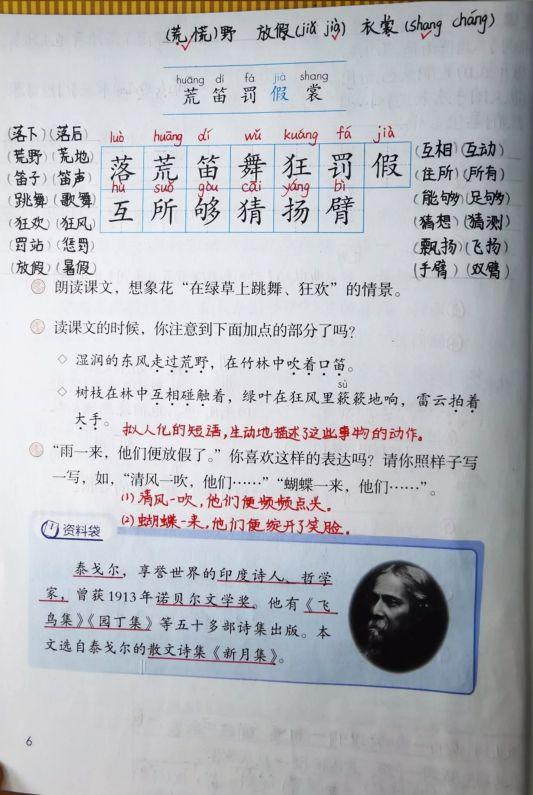 (荒 慌)野 放假(jiǎ jià) 衣裳(shang cháng)
huāng dí fá jià shang
荒 笛 罚 假 裳
luò huāng dí wǔ kuáng fá jià
(落下)(落后) 落 荒 笛 舞 狂 罚 假 (互相)(互动)
(荒野)(荒地) (住所)(所有)
(笛子)(笛声) hù suǒ gòu cāi yáng bì (能够)(足够)
(跳舞)(歌舞) 互 所 够 猜 扬 臂 (猜想)(猜测)
(狂欢)(狂风) (飘扬)(飞扬)
(罚站)(惩罚) (手臂)(双臂)
(放假)(暑假)
朗读课文，想象花“在绿草上跳舞、狂欢”的情景。
读课文的时候，你注意到下面加点的部分了吗？
◇ 湿润的东风走过荒野，在竹林中吹着口笛。
sù
◇ 树枝在林中互相碰触着，绿叶在狂风里簌簌地响，雷云拍着
大手。 拟人化的短语,生动地描述了这些事物的动作。
“雨一来，他们便放假了。”你喜欢这样的表达吗？请你照样子写
一写，如，“清风一吹，他们……”“蝴蝶一来，他们……”。
(1)清风一吹,他们便频频点头。
(2)蝴蝶一来,他们便绽开了笑脸。
资料袋
泰戈尔，享誉世界的印度诗人、哲学
家，曾获1913年诺贝尔文学奖。他有《飞
鸟集》《园丁集》等五十多部诗集出版。本
文选自泰戈尔的散文诗集《新月集》。
6